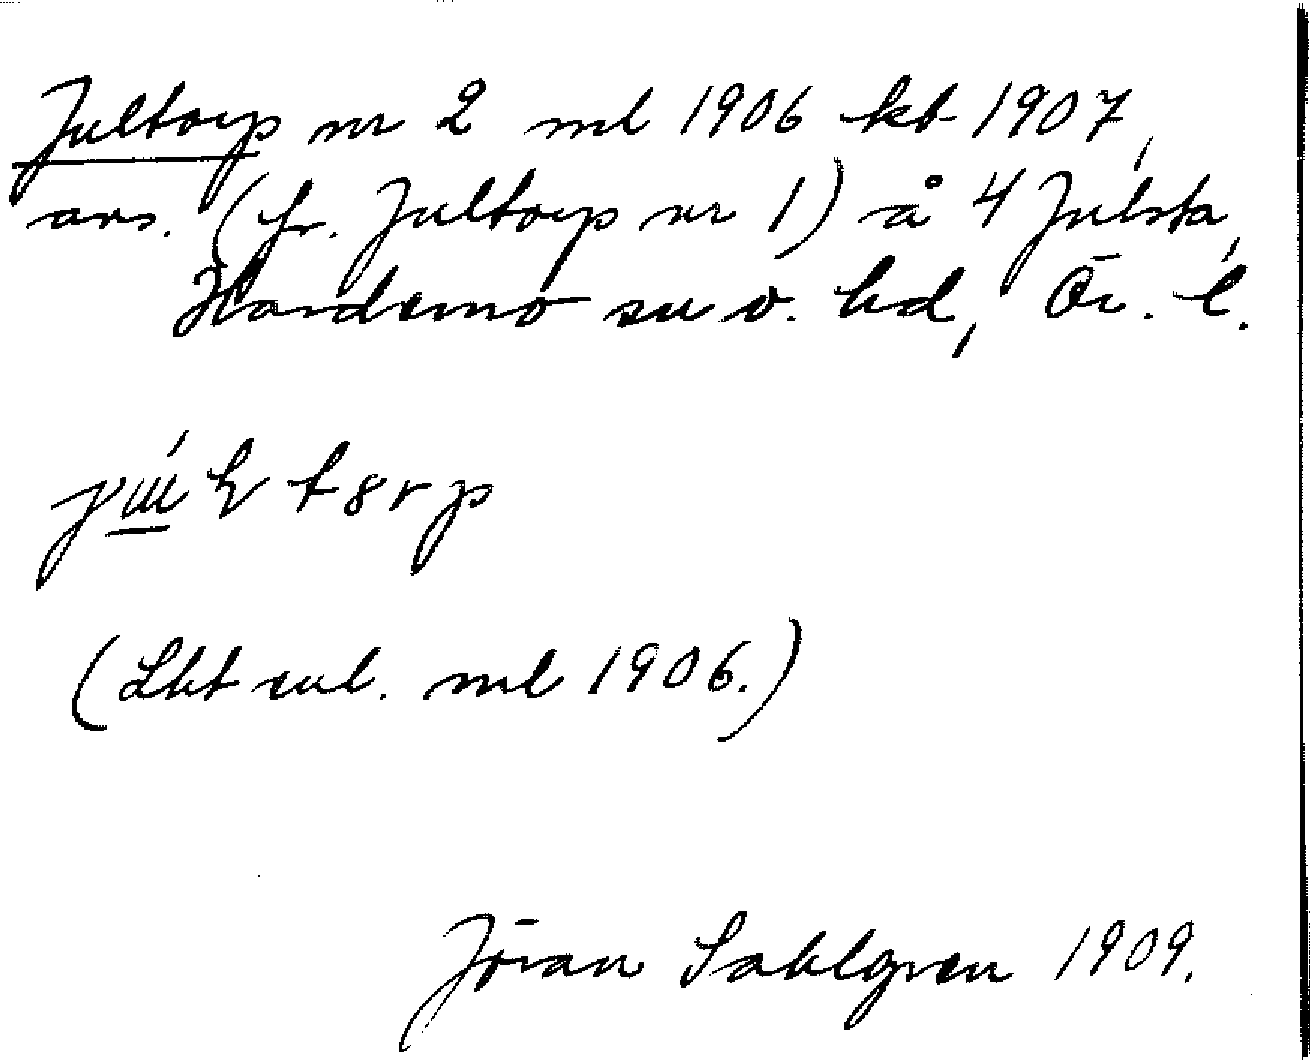 Jultorp nr 2 ml 1906 kb 1907,
avs. (fr. Jultorp nr 1) å 4 Julsta,
Hardemo sn o. hd, Ör. l.
(Lbt ml 1906.)
Jöran Sahlgren 1909.